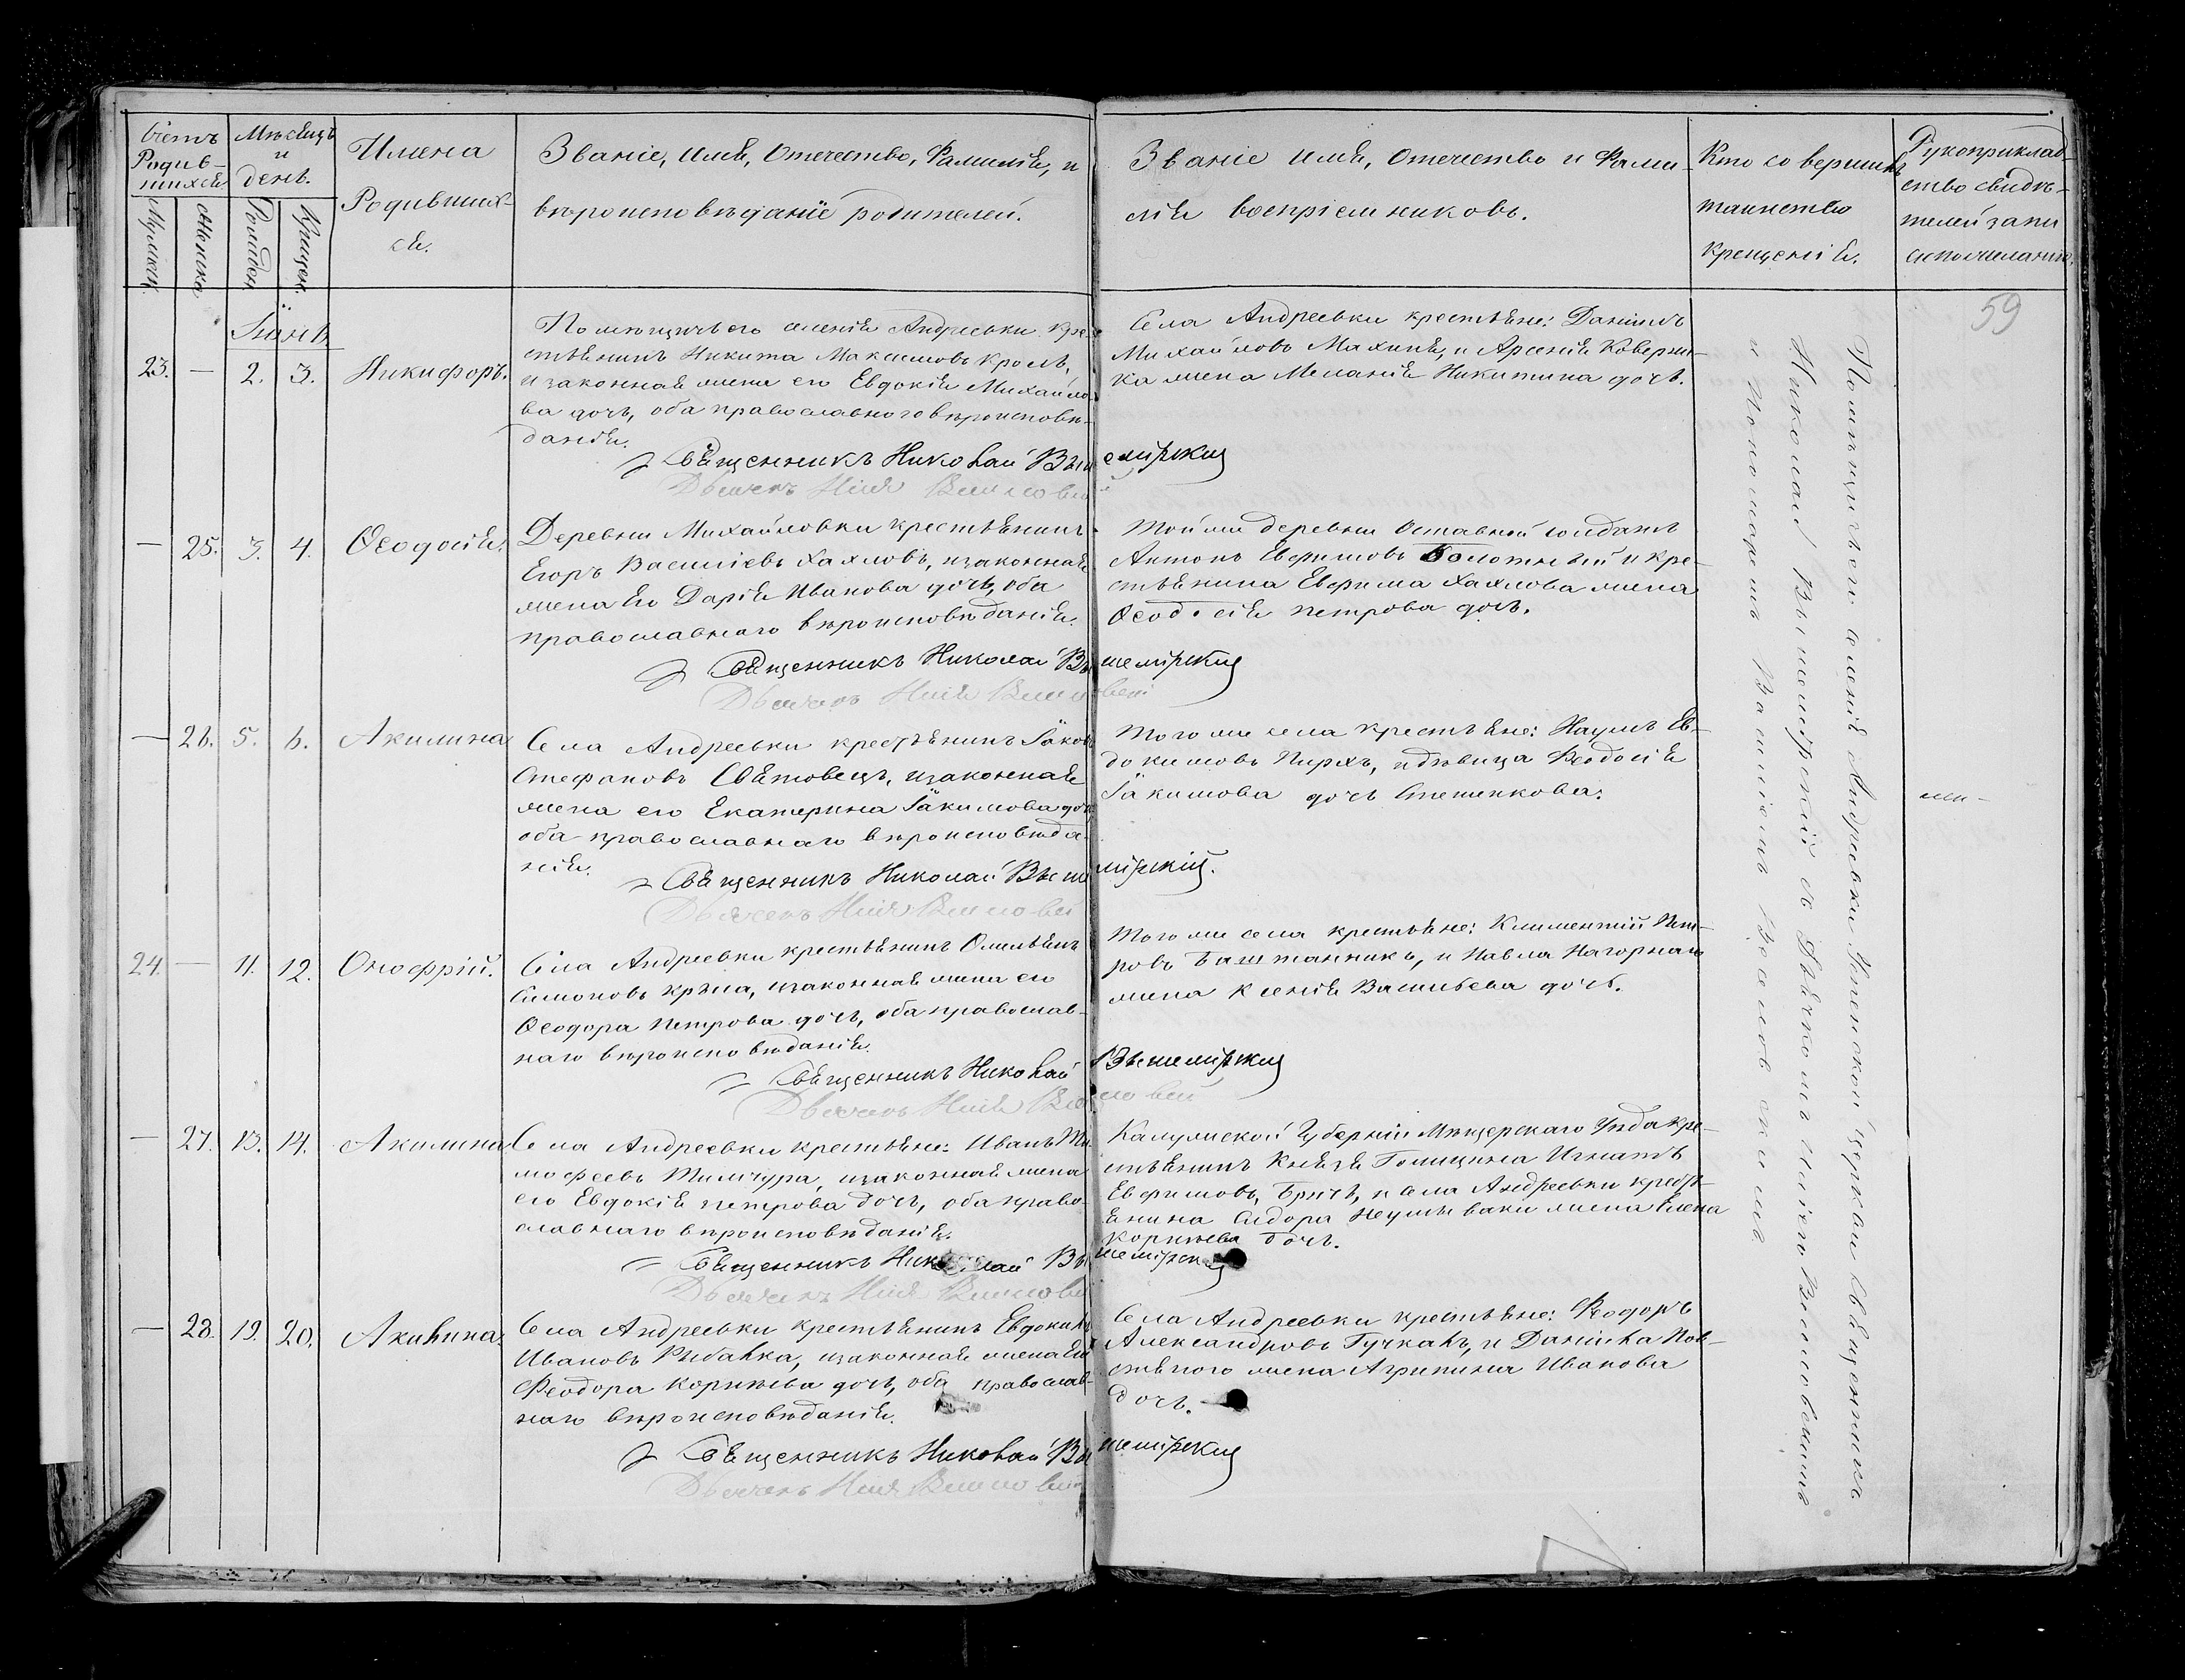 Счетъ Родив-
шихся
Мѣсяцъ
и
день.
Имена
Родивших-
ся.
Званіе, имя, Отечество, Фамилія, и
вѣроисповѣданіе родителей.
Званіе имя, Отечество и Фами-
лія воспріемниковъ.
Кто совершилъ
таинство
крещенія.
Рукоприклад-
ство свидѣ-
телей запи
си по желанію.
Мужеск.
Женска
Рожден.
Крещен.
59
Іюнь.
23. — 2. 3. Никифоръ.
Помѣщичьего селенія Андреевки кре-
стьянинъ Никита Максимовъ Кроль,
и законная жена его Евдокія Михайло-
ва дочь, оба православного вѣроисповѣ-
данія.
Священникъ Николай Вышемірскій
Дьячекъ Илія
Села Андреевки крестьяне: Даніилъ
Михайловъ Махиня, и Арсенія Коверни-
ка жена Меланія Никитина дочь.
— 25. 3. 4. Ѳеодосія.
Деревни Михайловки крестьянинъ
Егоръ Василіевъ Хахловъ, и законная
жена его Дарія Иванова дочь, оба
православнаго вѣроисповѣданія.
Священникъ Николай Вышемірскій
Дьячекъ Илія
Той же деревни Оставной солдатъ
Антонъ Евфимовъ Болотный и кре-
стьянина Евфима Хахлова жена
Ѳеодосія Петрова дочь.
— 26. 5. 6. Акилина
Села Андреевки крестьянинъ Іаковъ
Стефановъ Святовецъ, и законная
жена его Екатерина Іакимова дочь
оба православнаго вѣроисповѣда-
нія.
Священникъ Николай Вышемірскій.
Дьячекъ Илія
Того же села крестьяне: Наумъ Ев-
докимовъ Пирхъ, и дѣвица Ѳеодосія
Іакимова дочь Степенкова.
24. — 11. 12. Онофрій.
Села Андреевки крестьянинъ Омельянъ
Симоновъ и законная жена его
Ѳеодора Петрова дочь, оба православ-
наго вѣроисповѣданія.
Священникъ Николай Вышемірскій
Дьячекъ Илія
Того же села крестьяне: Климентій Пет-
ровъ Баштанникъ, и Павла Нагорнаго
жена Ксенія Васильева дочь.
— 27. 13. 14. Акилина
Села Андреевки крестьяне: Иванъ Ти-
мофеевъ и законная жена
его Евдокія Петрова дочь, оба право-
славнаго вѣроисповѣданія.
Священникъ Николай Вышемірскій
Дьячекъ Илія
Калужской Губерніи Мещерскаго Уѣзда кре-
стьянинъ Князя Голицына Игнатъ
Евфимовъ, и села Андреевки крест-
янина Сидора жена Елена
Корнѣева дочь.
— 28. 19. 20. Акилина.
Села Андреевки крестьянинъ Евдокимъ
Ивановъ Рыбалка, и законная жена его
Ѳеодора Корнѣева дочь, оба православ-
наго вѣроисповѣданія.
Священникъ Николай Вышемірскій
Дьячекъ Илія
Села Андреевки крестьяне: Ѳеодоръ
Александровъ и Даніила Пов-
стяного жена Агрипина Иванова
дочь.
Помѣщичьего селенія Андреевки Успенской церкви Священникъ
Николай Вышемірскій съ Дьячкомъ Иліею
и Пономаремъ Василіемъ